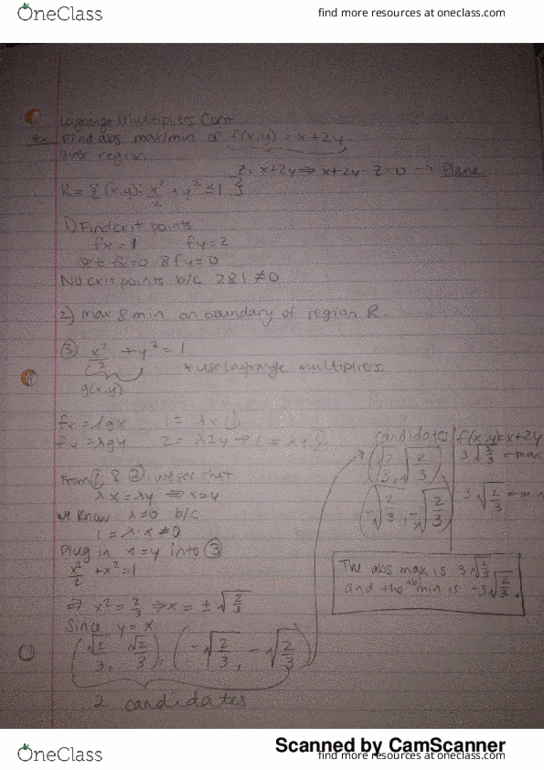 OneClass
find more resources at oneclass.com
Lagrange Multipliers Cont.
ex Find abs max/min of f(x,y) = x+2y
over region
z = x+2y ⇒ x+2y-z=0 → Plane
R = { (x,y): x²/2 + y² ≤ 1 }
1) Find crit points
fx = 1 fy = 2
set fx=0 & fy=0
No crit points b/c 2&1 ≠ 0
2) Max & min on boundary of region R.
③ x²/2 + y² = 1
* use lagrange multipliers.
g(x,y)
fx = λgx 1 = λx ①
fx = λgy 2 = λ2y ⇒ 1 = λy ②
From ① & ② we see that
λx = λy ⇒ x=y
We know λ≠0 b/c
1 = λ·x ≠ 0
Plug in x=y into ③
x²/2 + x² = 1
⇒ x² = 2/3 ⇒ x = ± √2/3
Since y = x
(√2/3, √2/3), (-√2/3, -√2/3)
2 candidates
candidates f(x,y)=x+2y
(√2/3, √2/3) 3√2/3 ← max
(-√2/3, -√2/3) 3√2/3 ← min
The abs max is 3√2/3
and the abs min is -3√2/3.
Scanned by CamScanner
OneClass
find more resources at oneclass.com